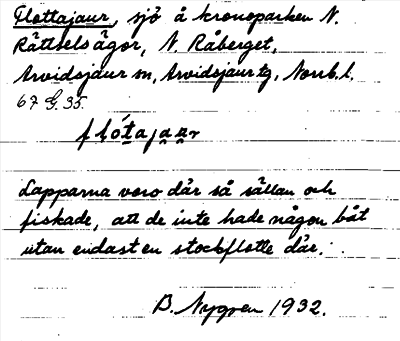 Flottajaur, sjö å kronoparken N.
Rättselsägor, N. Råberget,
Arvidsjaur sn, Arvidsjaur tg, Norrb. l.
67 G. 35.
flótajaur
Lapparna voro där så sällan och
fiskade, att de inte hade någon båt
utan endast en stockflotte där.
B. Nygren 1932.